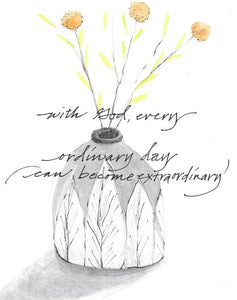 with God, every
ordinary day
can become extraordinary